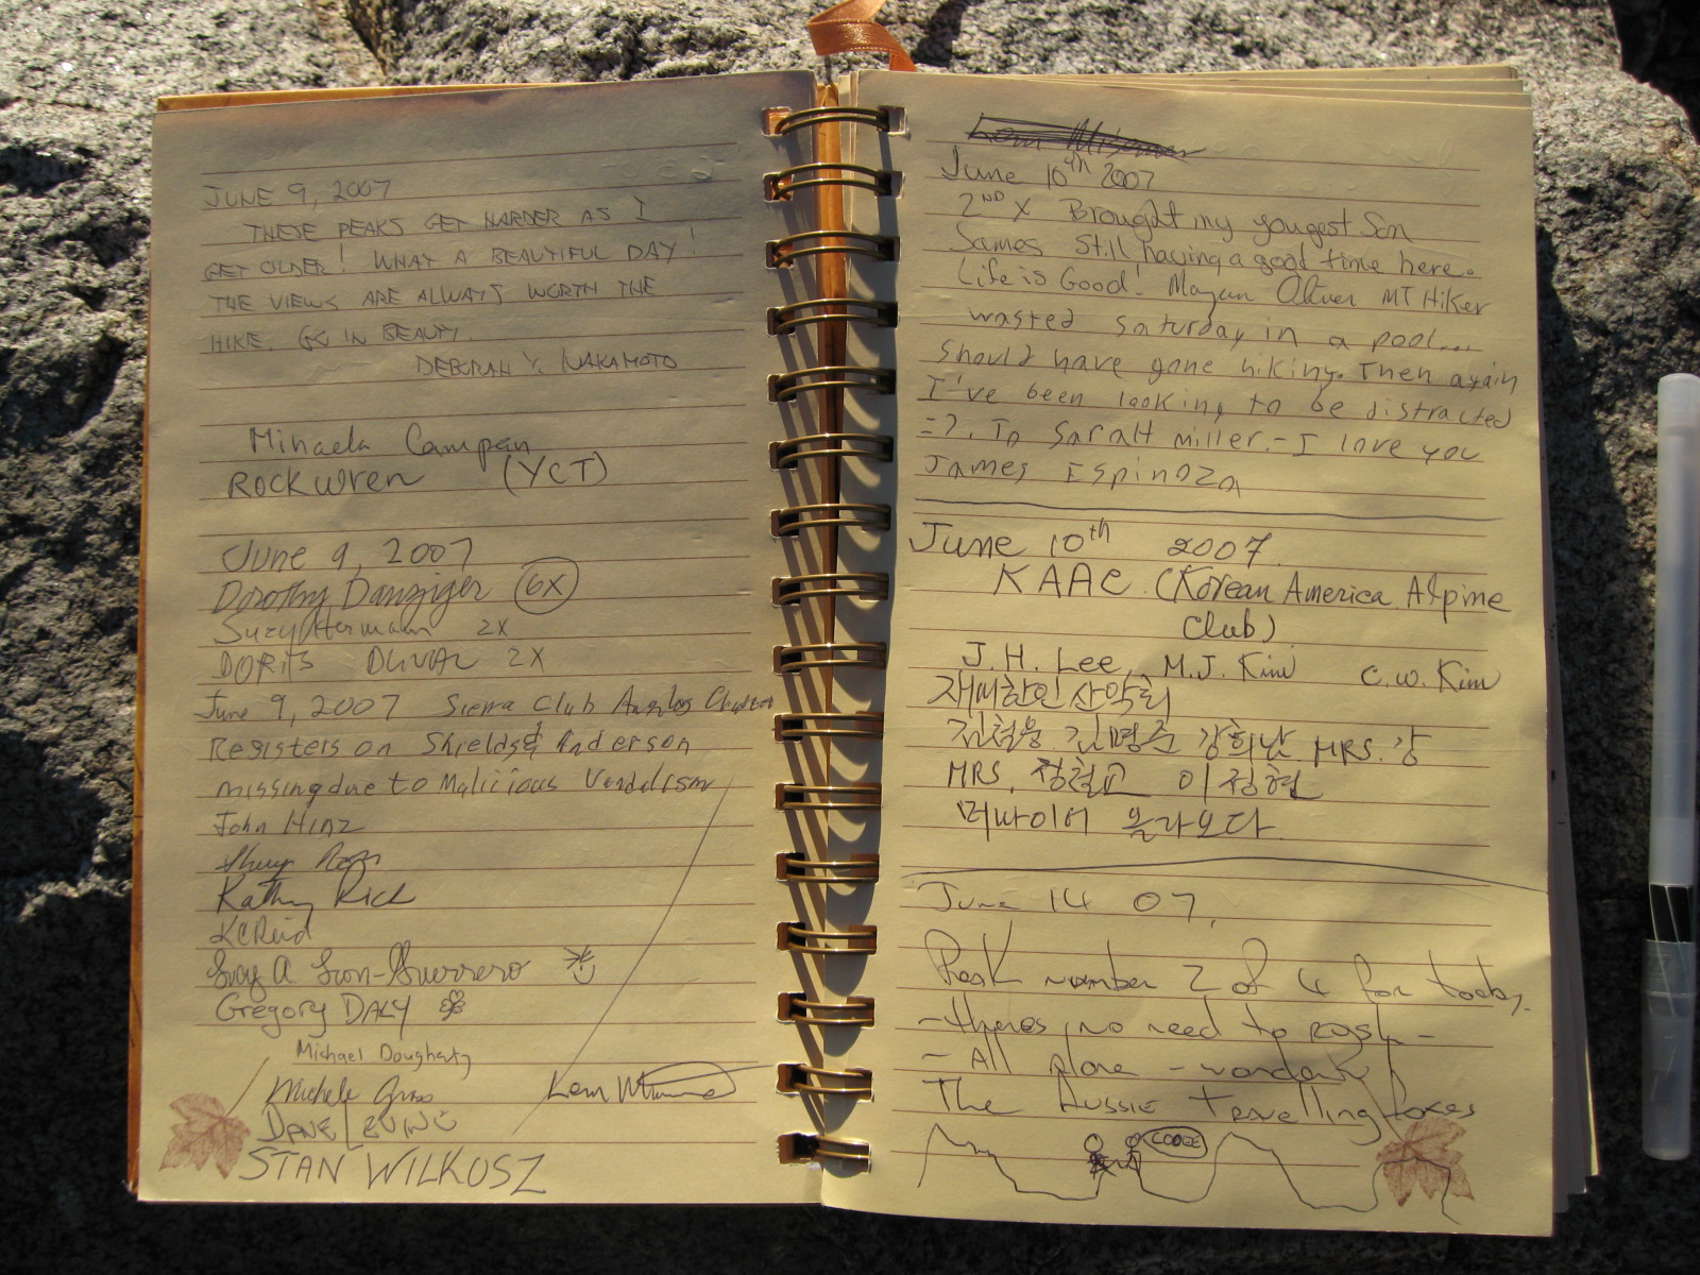 JUNE 9, 2007
THESE PEAKS GET HARDER AS I
GET OLDER! WHAT A BEAUTIFUL DAY!
THE VIEWS ARE ALWAYS WORTH THE
HIKE. GO IN BEAUTY.
DEBORAH Y. NAKAMOTO
Mihaela Campan
ROCKWREN (YCT)
June 9, 2007
Dorothy Danziger 6X
Suzy Hermann 2X
DORIS DUVAL 2X
June 9, 2007 Sierra Club Angeles Chapter
Registers on Shields & Anderson
missing due to Malicious Vandalism
John Hinz
Kathy Rich
KC Reid
Gregory DALY
Michael Dougherty
Michele
DANE LEVIN
STAN WILKOSZ
June 10th 2007
2ND X Brought my yougest Son
James Still having a good time here.
Life is Good! Oliver MT Hiker
wasted saturday in a pool...
should have gone hiking. Then again
I've been looking to be distracted
=). To SaraH miller. - I love you
James Espinoza
June 10th 2007.
KAAC (Korean America Alpine
Club)
J.H. Lee, M.J. Kim C.W. Kim
재미한인산악회
김철웅 김명준 강희난 MRS. 강
MRS. 정철교 이정현
올라오다
June 14 07.
Peak number 2 of 4 for today.
- theres no need to rush -
- All alone - wonderful
The Aussie travelling foxes
COOEE